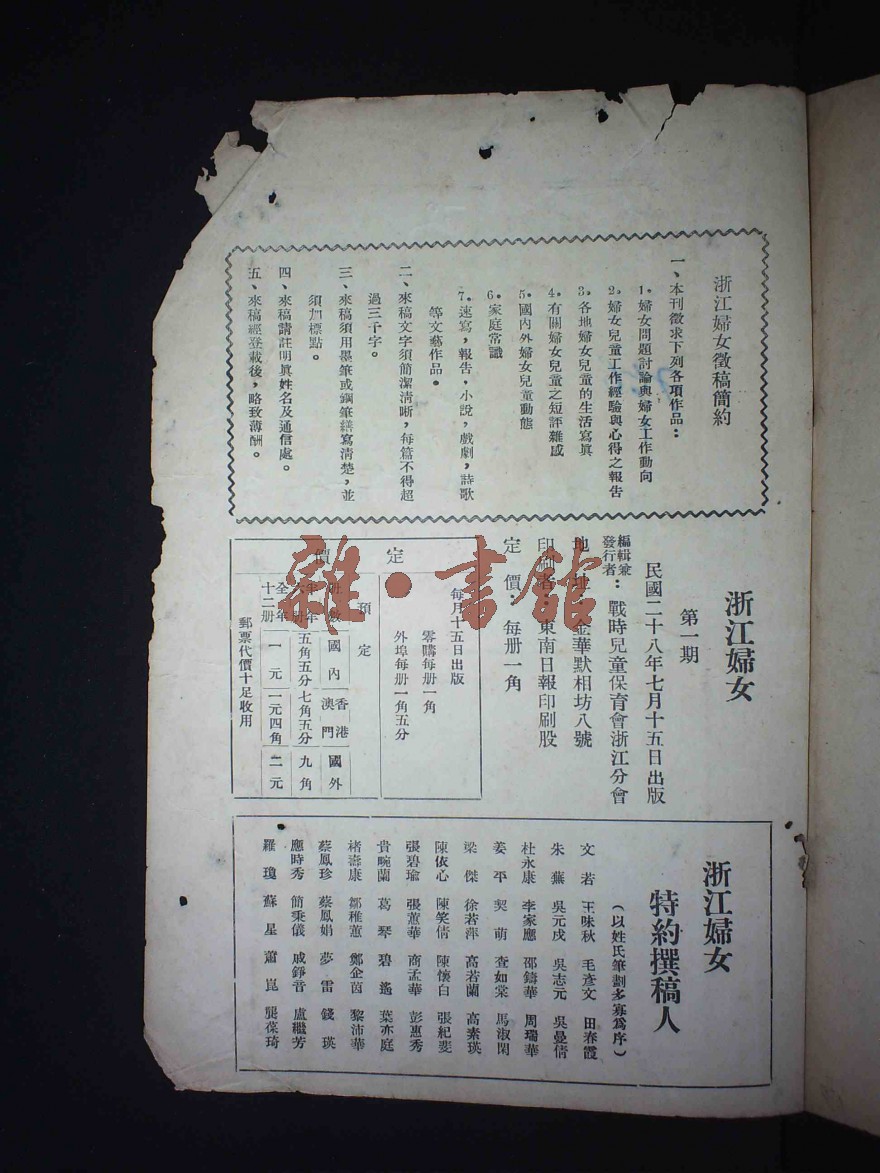 浙江婦女徵稿簡約
一、本刊徵求下列各項作品：
1.婦女問題討論與婦女工作動向
2.婦女兒童工作經驗與心得之報告
3.各地婦女兒童的生活寫眞
4.有關婦女兒童之短評雜感
5.國內外婦女兒童動態
6.家庭常識
7.速寫，報告，小說，戲劇，詩歌
等文藝作品。
二、來稿文字須簡潔清晰，每篇不得超
過三千字。
三、來稿須用墨筆或鋼筆繕寫清楚，並
須加標點。
四、來稿請註明眞姓名及通信處。
五、來稿經登載後，略致薄酬。
浙江婦女
第一期
民國二十八年七月十五日出版
編輯兼
發行者：戰時兒童保育會浙江分會
地址：金華默相坊八號
印刷者：東南日報印刷股
定價：每册一角
定價
每月十五日出版
零購每册一角
外埠每册一角五分
預定
册數 國內 香港澳門 國外
半年六册 五角五分 七角五分 九角
全年十二册 一元 一元四角 二元
郵票代價十足收用
浙江婦女
特約撰稿人
（以姓氏筆劃多寡爲序）
文若 王味秋 毛彥文 田春霞
朱蕪 吳元戍 吳志元 吳曼倩
杜永康 李家應 邵鑄華 周瑞華
姜平 契萌 查如棠 馬淑閑
梁傑 徐若萍 高若蘭 高素瑛
陳依心 陳笑倩 陳懷白 張紀斐
張碧瑜 張蕙華 商孟華 彭惠秀
貴畹蘭 葛琴 碧遙 葉亦庭
褚壽康 鄒稚蕙 鄭企茵 黎沛華
蔡鳳珍 蔡鳳娟 夢雷 錢瑛
應時秀 簡秉儀 戚錚音 盧繼芳
羅瓊 蘇星 蕭崑 龔葆琦
雜·書館